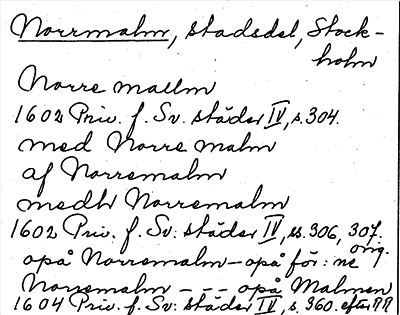 Norrmalm, stadsdel, Stock-
holm
Norre mallm
1602 Priv. f. Sv. städer IV, s. 304.
med Norre malm
af Norremalm
medh Norremalm
1602 Priv. f. Sv. städer IV, ss. 306, 307.
opå Norremalm – opå för: ne orig.
Norremalm - - - opå Malmen
1604 Priv. f. Sv. städer IV, s. 360. efter